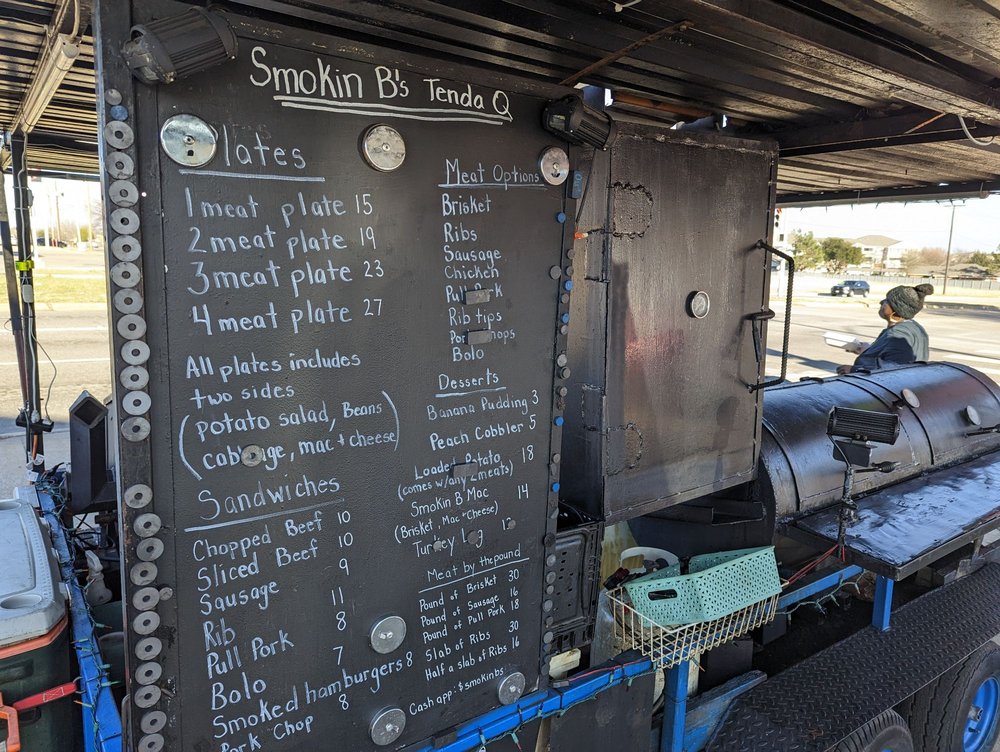 Smokin B's Tenda Q
Plates
1 meat plate 15
2 meat plate 19
3 meat plate 23
4 meat plate 27
All plates includes
two sides
(potato salad, Beans
cabbage, mac + cheese)
Sandwiches
Chopped Beef 10
Sliced Beef 10
Sausage 9
Rib 11
Pull Pork 8
Bolo 7
Smoked hamburgers 8
Pork Chop 8
Meat Options
Brisket
Ribs
Sausage
Chicken
Pull Pork
Rib tips
Pork Chops
Bolo
Desserts
Banana Pudding 3
Peach Cobbler 5
Loaded Potato 18
(comes w/any 2 meats)
Smokin B' Mac 14
(Brisket, Mac + Cheese)
Turkey
Meat by the pound
Pound of Brisket 30
Pound of Sausage 16
Pound of Pull Pork 18
Slab of Ribs 30
Half a slab of Ribs 16
Cash app: $smokinbs